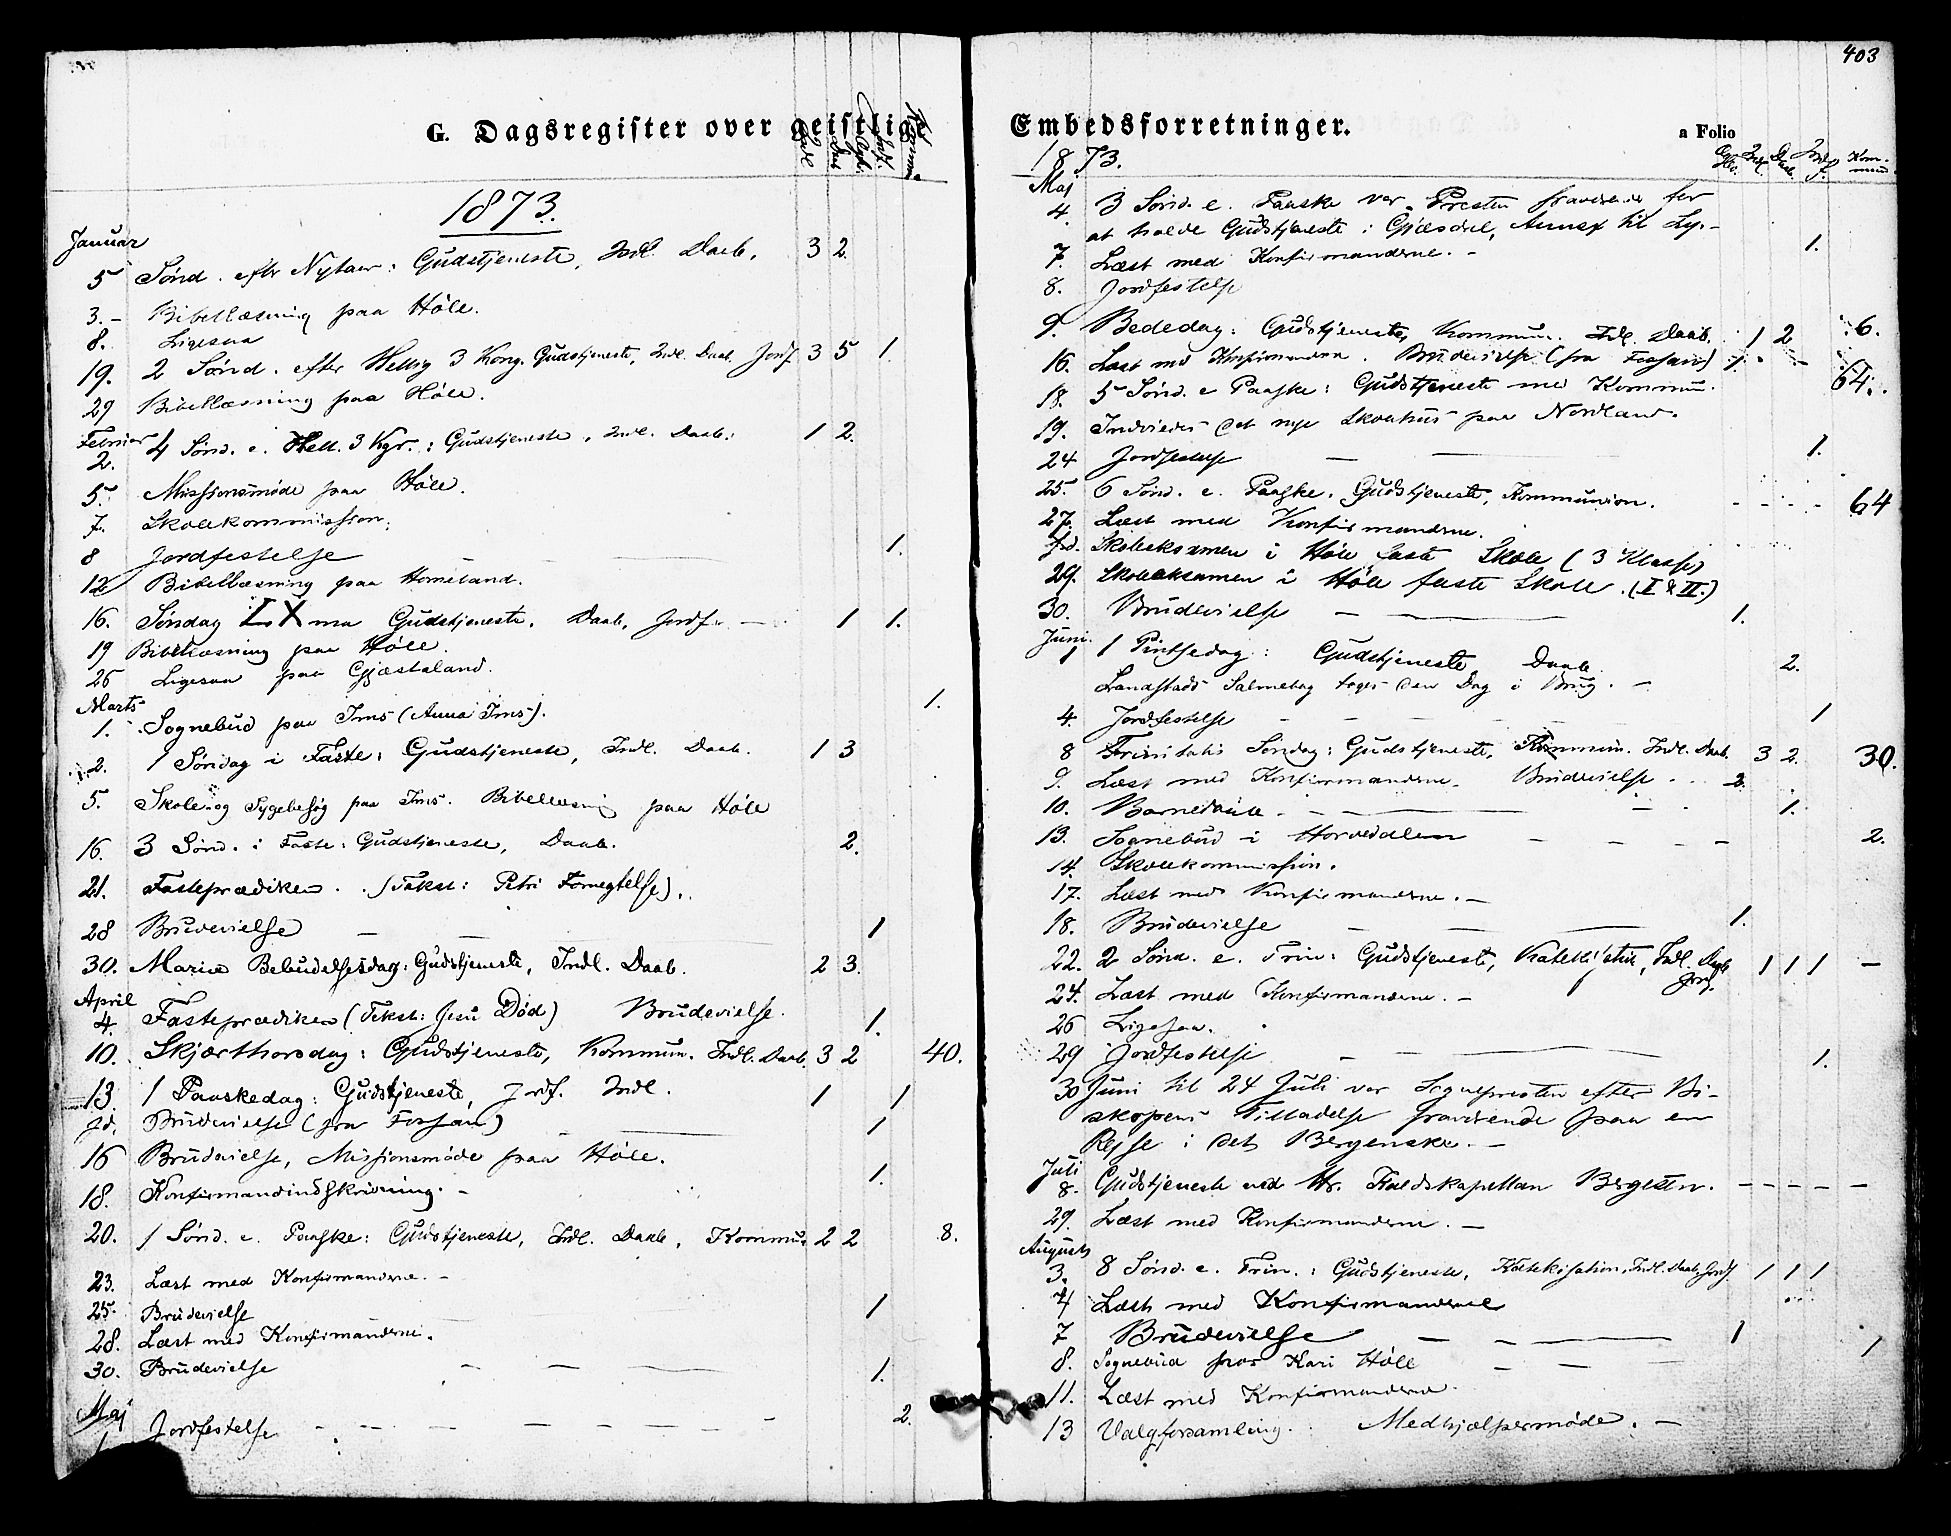 G. Dagsregister over geistlige
1873.
Januar
5 Sønd. efter Nytaar: Gudstjeneste, Indl. Daab. 3 2.
3. – Bibellæsning paa Høle.
8. Ligesaa
19. 2 Sønd. efter Hellig 3 Kong. Gudstjeneste, Indl. Daab. Jordf. 3 5 1.
29 Bibellæsning paa Høle.
Februar
2. 4 Sønd. e. Hell. 3 Kgr.: Gudstjeneste, Indl. Daab. 1 2.
5. Missionsmøde paa Høle.
7. Skolekommission.
8 Jordfestelse — 1.
12 Bibellæsning paa Homeland.
16. Søndag LXma Gudstjeneste. Daab. Jordf. — 1 1.
19 Bibellæsning paa Høle.
26 Ligesaa paa Gjæstaland.
Marts
1. Sognebud paa Ims (Anna Ims). 1.
2. 1 Søndag i Faste: Gudstjeneste, Indl. Daab. 1 3
5. Skole og Sygebesøg paa Ims. Bibellæsning paa Høle
16. 3 Sønd. i Faste: Gudstjeneste, Daab. 2.
21. Fasteprædiken. (Tekst: Petri Fornegtelse).
28 Brudevielse — 1
30. Mariæ Bebudelsesdag: Gudstjeneste, Indl. Daab. 2 3.
April
4. Fasteprædiken (Tekst: Jesu Død) Brudevielse. 1.
10. Skjærthorsdag: Gudstjeneste, Kommun. Indl. Daab. 3 2 40.
13. 1 Paaskedag: Gudstjeneste, Jordf. Indl. 1 1
Jd. Brudevielse (fra Forsan) — 1
16 Brudevielse, Missionsmøde paa Høle. 1.
18. Konfirmandindskrivning. –
20. 1 Sønd. e. Paaske: Gudstjeneste, Indl. Daab, Kommun. 2 2 8.
23. Læst med Konfirmanderne. –
25. Brudevielse 1
28. Læst med Konfirmanderne.
30. Brudevielse — 1.
Maj
1 Jordfestelse — 2.
403
Embedsforretninger.
a Folio
1873.
Maj
4. 3 Sønd. e. Paaske var Presten fraværende for
at holde Gudstjeneste i Gjesdal, Annex til Ly.-
7. Læst med Konfirmanderne. – 1.
8. Jordfestelse
9. Bededag: Gudstjeneste, Kommun. Indl. Daab. 1 2 6.
16. Læst med Konfirmanderne. Brudevielse (fra Forsan) 1.
18. 5 Sønd. e Paaske: Gudstjeneste med Kommun. 64.
19. Indviedes det nye Skolehus paa Nordland.
24 Jordfestelse — 1.
25. 6 Sønd. e. Paaske. Gudstjeneste, Kommunion. 64
27. Læst med Konfirmanderne.
Jd. Skoleeksamen i Høle faste Skole (3 Klasse)
29. Skoleeksamen i Høle faste Skole. (I & II.)
30. Brudevielse — 1.
Juni
1 1 Pintsedag: Gudstjeneste Daab. 2.
Landstads Salmebog toges den Dag i Brug. –
4. Jordfestelse — 1
8 Trinitatis Søndag: Gudstjeneste, Kommun. Indl. Daab. 3 2. 30.
9. Læst med Konfirmanderne. Brudevielse. 2.
10. Barnedaab. — 1.
13. Sognebud i Horvedalen — 2.
14. Skolekommission.
17. Læst med Konfirmanderne. –
18. Brudevielse — 1.
22. 2 Sønd. e. Trin: Gudstjeneste, Katekisation, Indl. Daab Jordf. 1 1 1 —
24. Læst med Konfirmanderne. –
26 Ligesaa.
29 Jordfestelse — 1.
30 Juni til 24 Juli var Sognepresten efter Bi-
skopens Tilladelse fraværende paa en
Rejse i det Bergenske. –
Juli
8. Gudstjeneste ved Hr. Kaldskapellan Bergesen. —
29. Læst med Konfirmanderne. –
Augusts
3. 8 Sønd. e. Trin.: Gudstjeneste, Katekisation, Indl. Daab, Jordf. 1 1 1
4 Læst med Konfirmanderne
7 Brudevielse — 1
8. Sognebud hos Kari Høle — 1
11. Læst med Konfirmanderne.
13 Valgforsamling. Medhjælpermøde. –